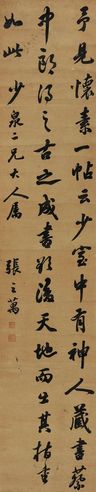 予見懷素一帖云少室中有神人藏書蔡
中郎得之古之成書欲後天地而出其指重
如此　少泉二兄大人屬　張之萬